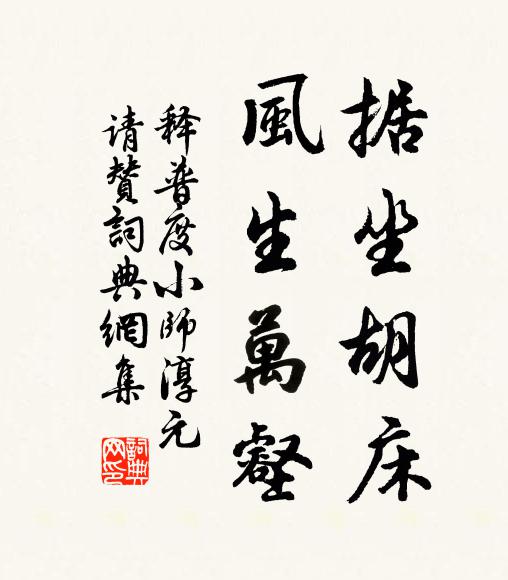 据坐胡床
風生萬壑
释普度小師淳元
请贊詞典網集
詞典网印